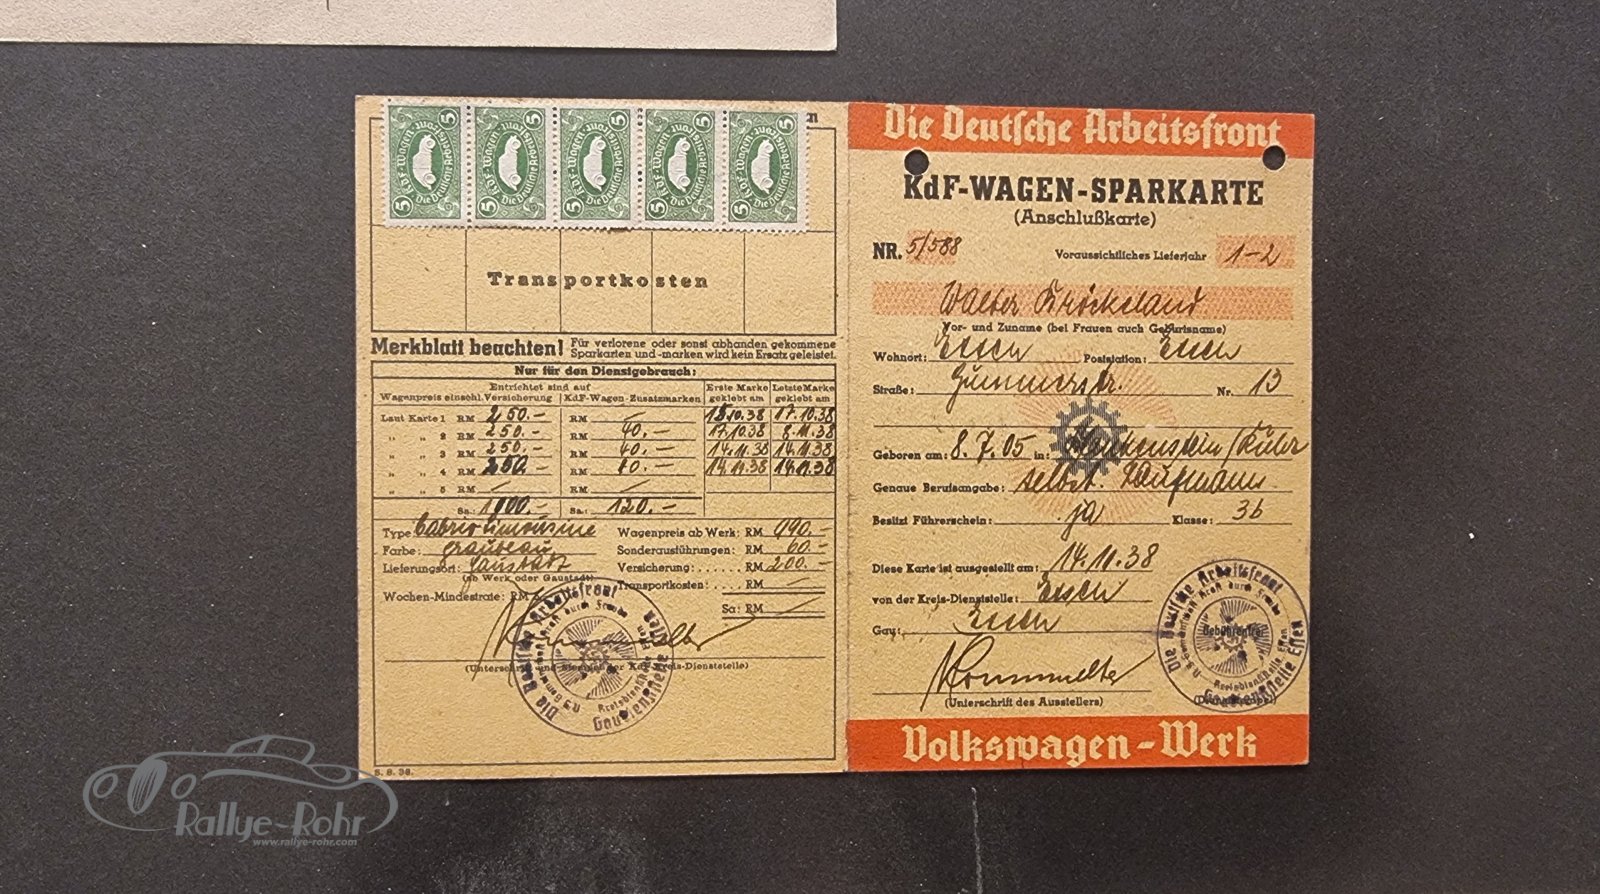 5 5 5 5 5
KdF-Wagen
Die Deutsche Arbeitsfront
Transportkosten
Merkblatt beachten! Für verlorene oder sonst abhanden gekommene
Sparkarten und -marken wird kein Ersatz geleistet.
Nur für den Dienstgebrauch:
Entrichtet sind auf
Wagenpreis einschl. Versicherung
KdF-Wagen-Zusatzmarken
Erste Marke geklebt am
Letzte Marke geklebt am
Laut Karte 1 RM 250.- RM — 15.10.38 17.10.38
„ „ 2 RM 250.- RM 40.- 17.10.38 8.11.38
„ „ 3 RM 250.- RM 40.- 14.11.38 14.11.38
„ „ 4 RM 250.- RM 40.- 14.11.38 14.11.38
„ „ 5 RM — RM —
Sa.: 1000.- Sa.: 120.-
Type: Cabrio Limousine Wagenpreis ab Werk: RM 990.-
Farbe: graublau Sonderausführungen: RM 60.-
Lieferungsort: Gaustadt Versicherung: ...... RM 200.-
(ab Werk oder Gaustadt) Transportkosten: . . RM —
Wochen-Mindestrate: RM
Sa: RM —
(Unterschrift und Stempel der KdF-Kreis-Dienststelle)
Die Deutsche Arbeitsfront
N.S. Gemeinschaft Kraft durch Freude
Kreisdienststelle Essen
Gaudienststelle Essen
8. 8. 38.
Die Deutsche Arbeitsfront
KdF-WAGEN-SPARKARTE
(Anschlußkarte)
NR. 5/588 Voraussichtliches Lieferjahr 1-2
Walter
Vor- und Zuname (bei Frauen auch Geburtsname)
Wohnort: Essen Poststation: Essen
Straße: Nr. 13
Geboren am: 8.7.05 in:
Genaue Berufsangabe: selbst. Kaufmann
Besitzt Führerschein: ja Klasse: 3b
Diese Karte ist ausgestellt am: 14.11.38
von der Kreis-Dienststelle: Essen
Gau: Essen
(Unterschrift des Ausstellers)
(Dienststempel)
Die Deutsche Arbeitsfront
N.S. Gemeinschaft Kraft durch Freude
Gebührenfrei
Kreisdienststelle Essen
Gaudienststelle Essen
Volkswagen-Werk
Rallye-Rohr
www.rallye-rohr.com